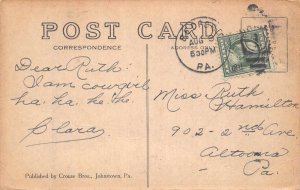 POST CARD
CORRESPONDENCE
ADDRESS ONLY
AUG
530PM
PA.
Dear Ruth:
I am cowgirl
ha. ha. he. he.
Clara.
Miss Ruth
Hamilton
902-2nd Ave
Altoona
Pa.
Published by Crouse Bros., Johnstown, Pa.